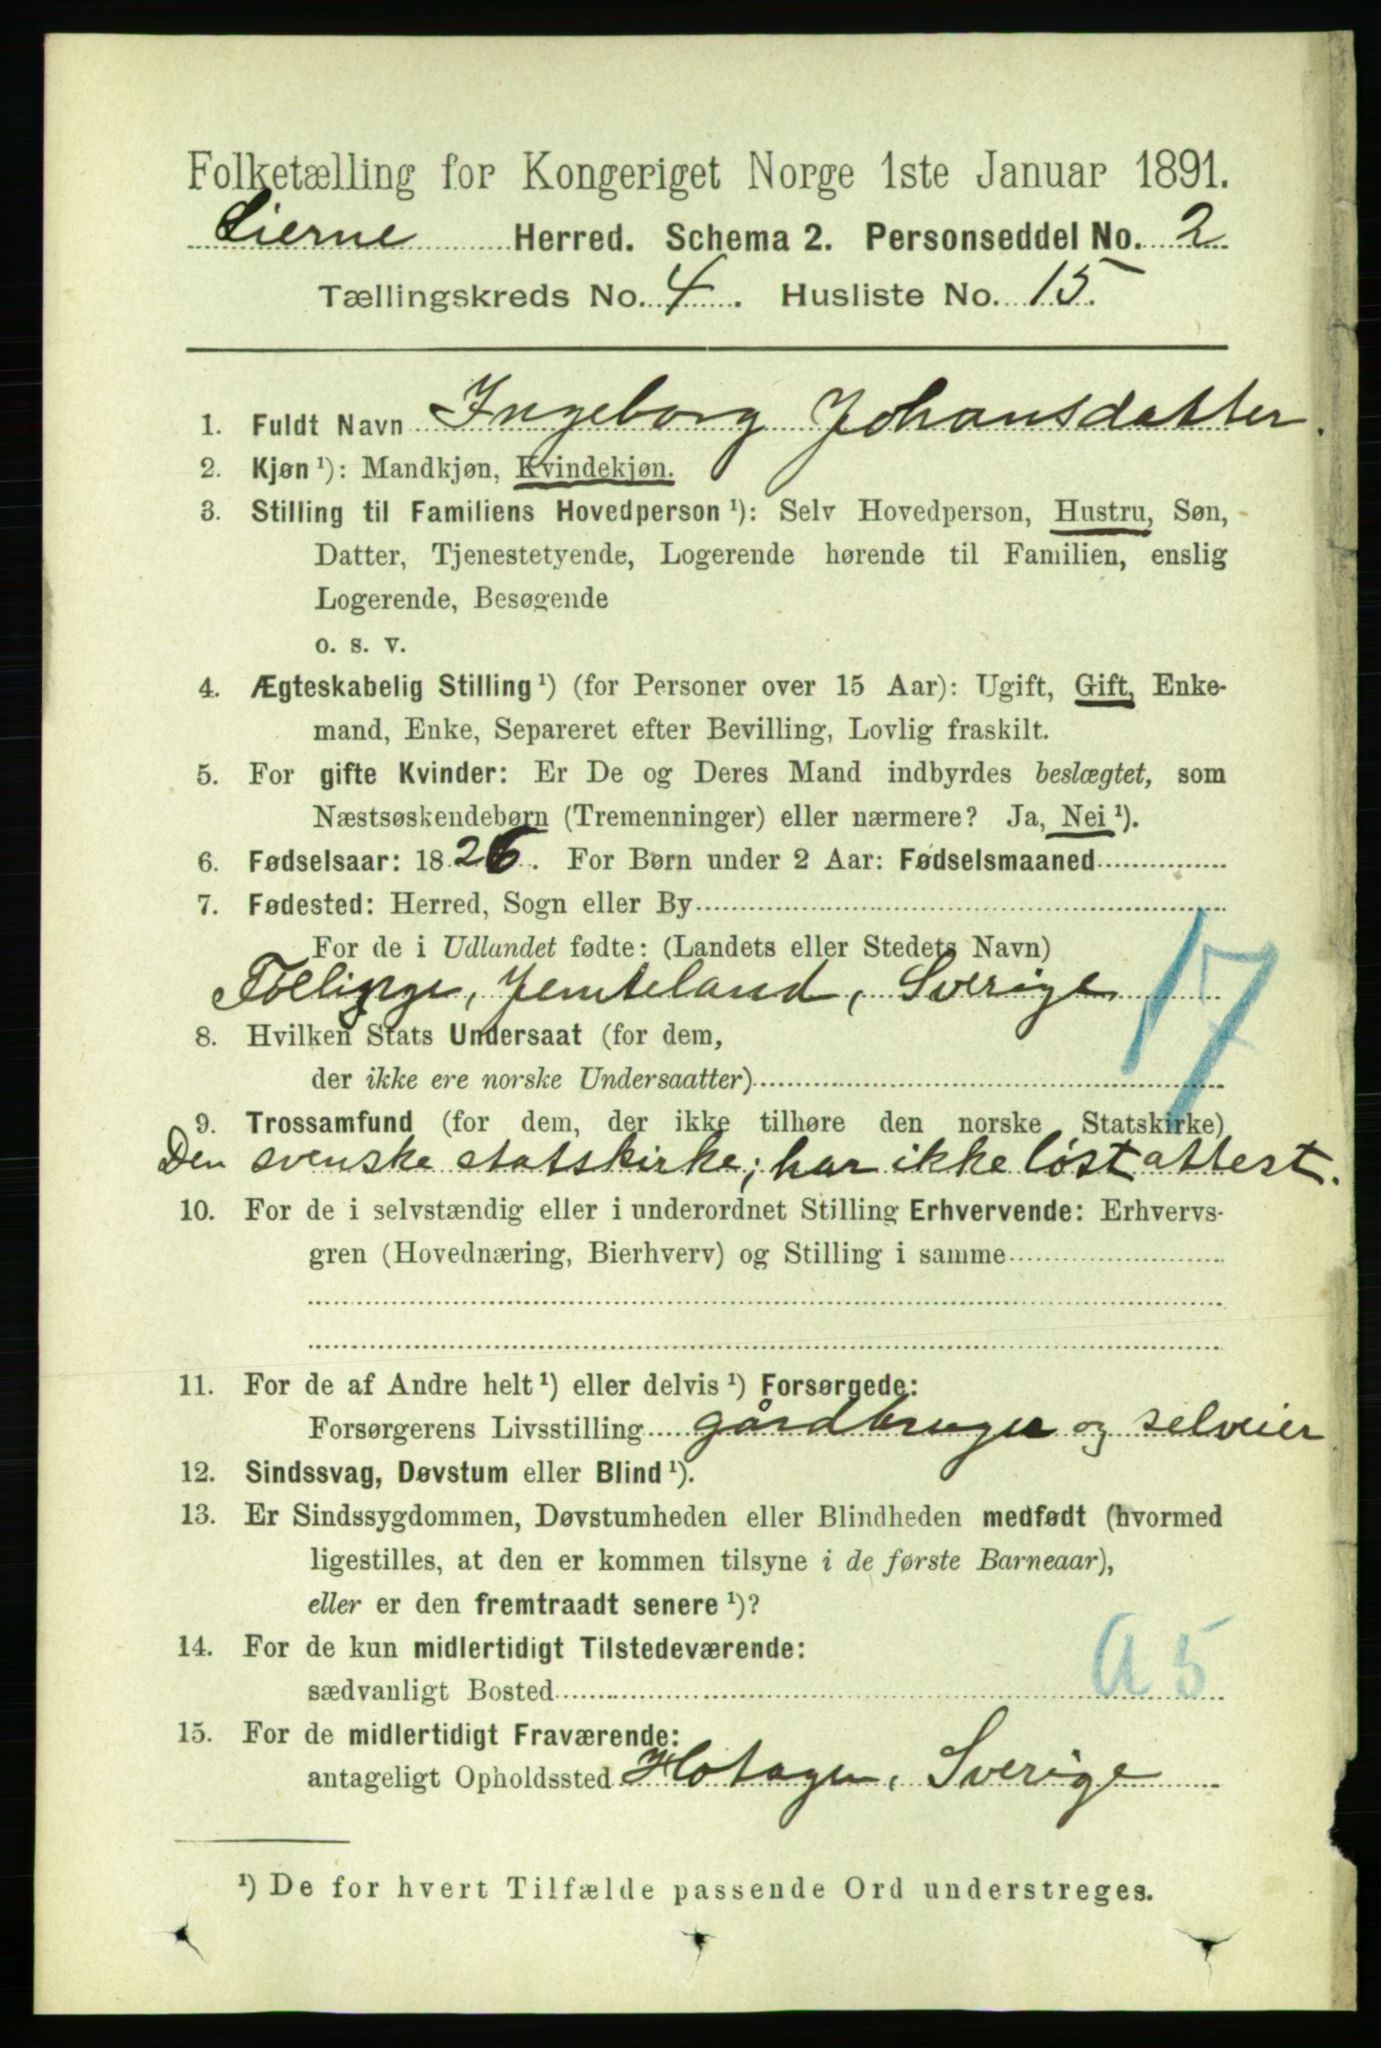 Folketælling for Kongeriget Norge 1ste Januar 1891.
Lierne Herred. Schema 2. Personseddel No. 2
Tællingskreds No. 4. Husliste No. 15.
1. Fuldt Navn Ingeborg Johansdatter.
2. Kjøn ¹): Mandkjøn, Kvindekjøn.
3. Stilling til Familiens Hovedperson ¹): Selv Hovedperson, Hustru, Søn,
Datter, Tjenestetyende, Logerende hørende til Familien, enslig
Logerende, Besøgende
o. s. v.
4. Ægteskabelig Stilling ¹) (for Personer over 15 Aar): Ugift, Gift, Enke-
mand, Enke, Separeret efter Bevilling, Lovlig fraskilt.
5. For gifte Kvinder: Er De og Deres Mand indbyrdes beslægtet, som
Næstsøskendebørn (Tremenninger) eller nærmere? Ja, Nei ¹).
6. Fødselsaar: 1826. For Børn under 2 Aar: Fødselsmaaned
7. Fødested: Herred, Sogn eller By
For de i Udlandet fødte: (Landets eller Stedets Navn)
Føllinge, Jemteland, Sverige
17
8. Hvilken Stats Undersaat (for dem,
der ikke ere norske Undersaatter)
9. Trossamfund (for dem, der ikke tilhøre den norske Statskirke)
Den svenske statskirke; har ikke løst attest.
10. For de i selvstændig eller i underordnet Stilling Erhvervende: Erhvervs-
gren (Hovednæring, Bierhverv) og Stilling i samme
11. For de af Andre helt ¹) eller delvis ¹) Forsørgede:
Forsørgerens Livsstilling gårdbruger og selveier
12. Sindssvag, Døvstum eller Blind ¹).
13. Er Sindssygdommen, Døvstumheden eller Blindheden medfødt (hvormed
ligestilles, at den er kommen tilsyne i de første Barneaar),
eller er den fremtraadt senere ¹)?
14. For de kun midlertidigt Tilstedeværende:
sædvanligt Bosted
A 5
15. For de midlertidigt Fraværende:
antageligt Opholdssted Hotagen, Sverige
¹) De for hvert Tilfælde passende Ord understreges.